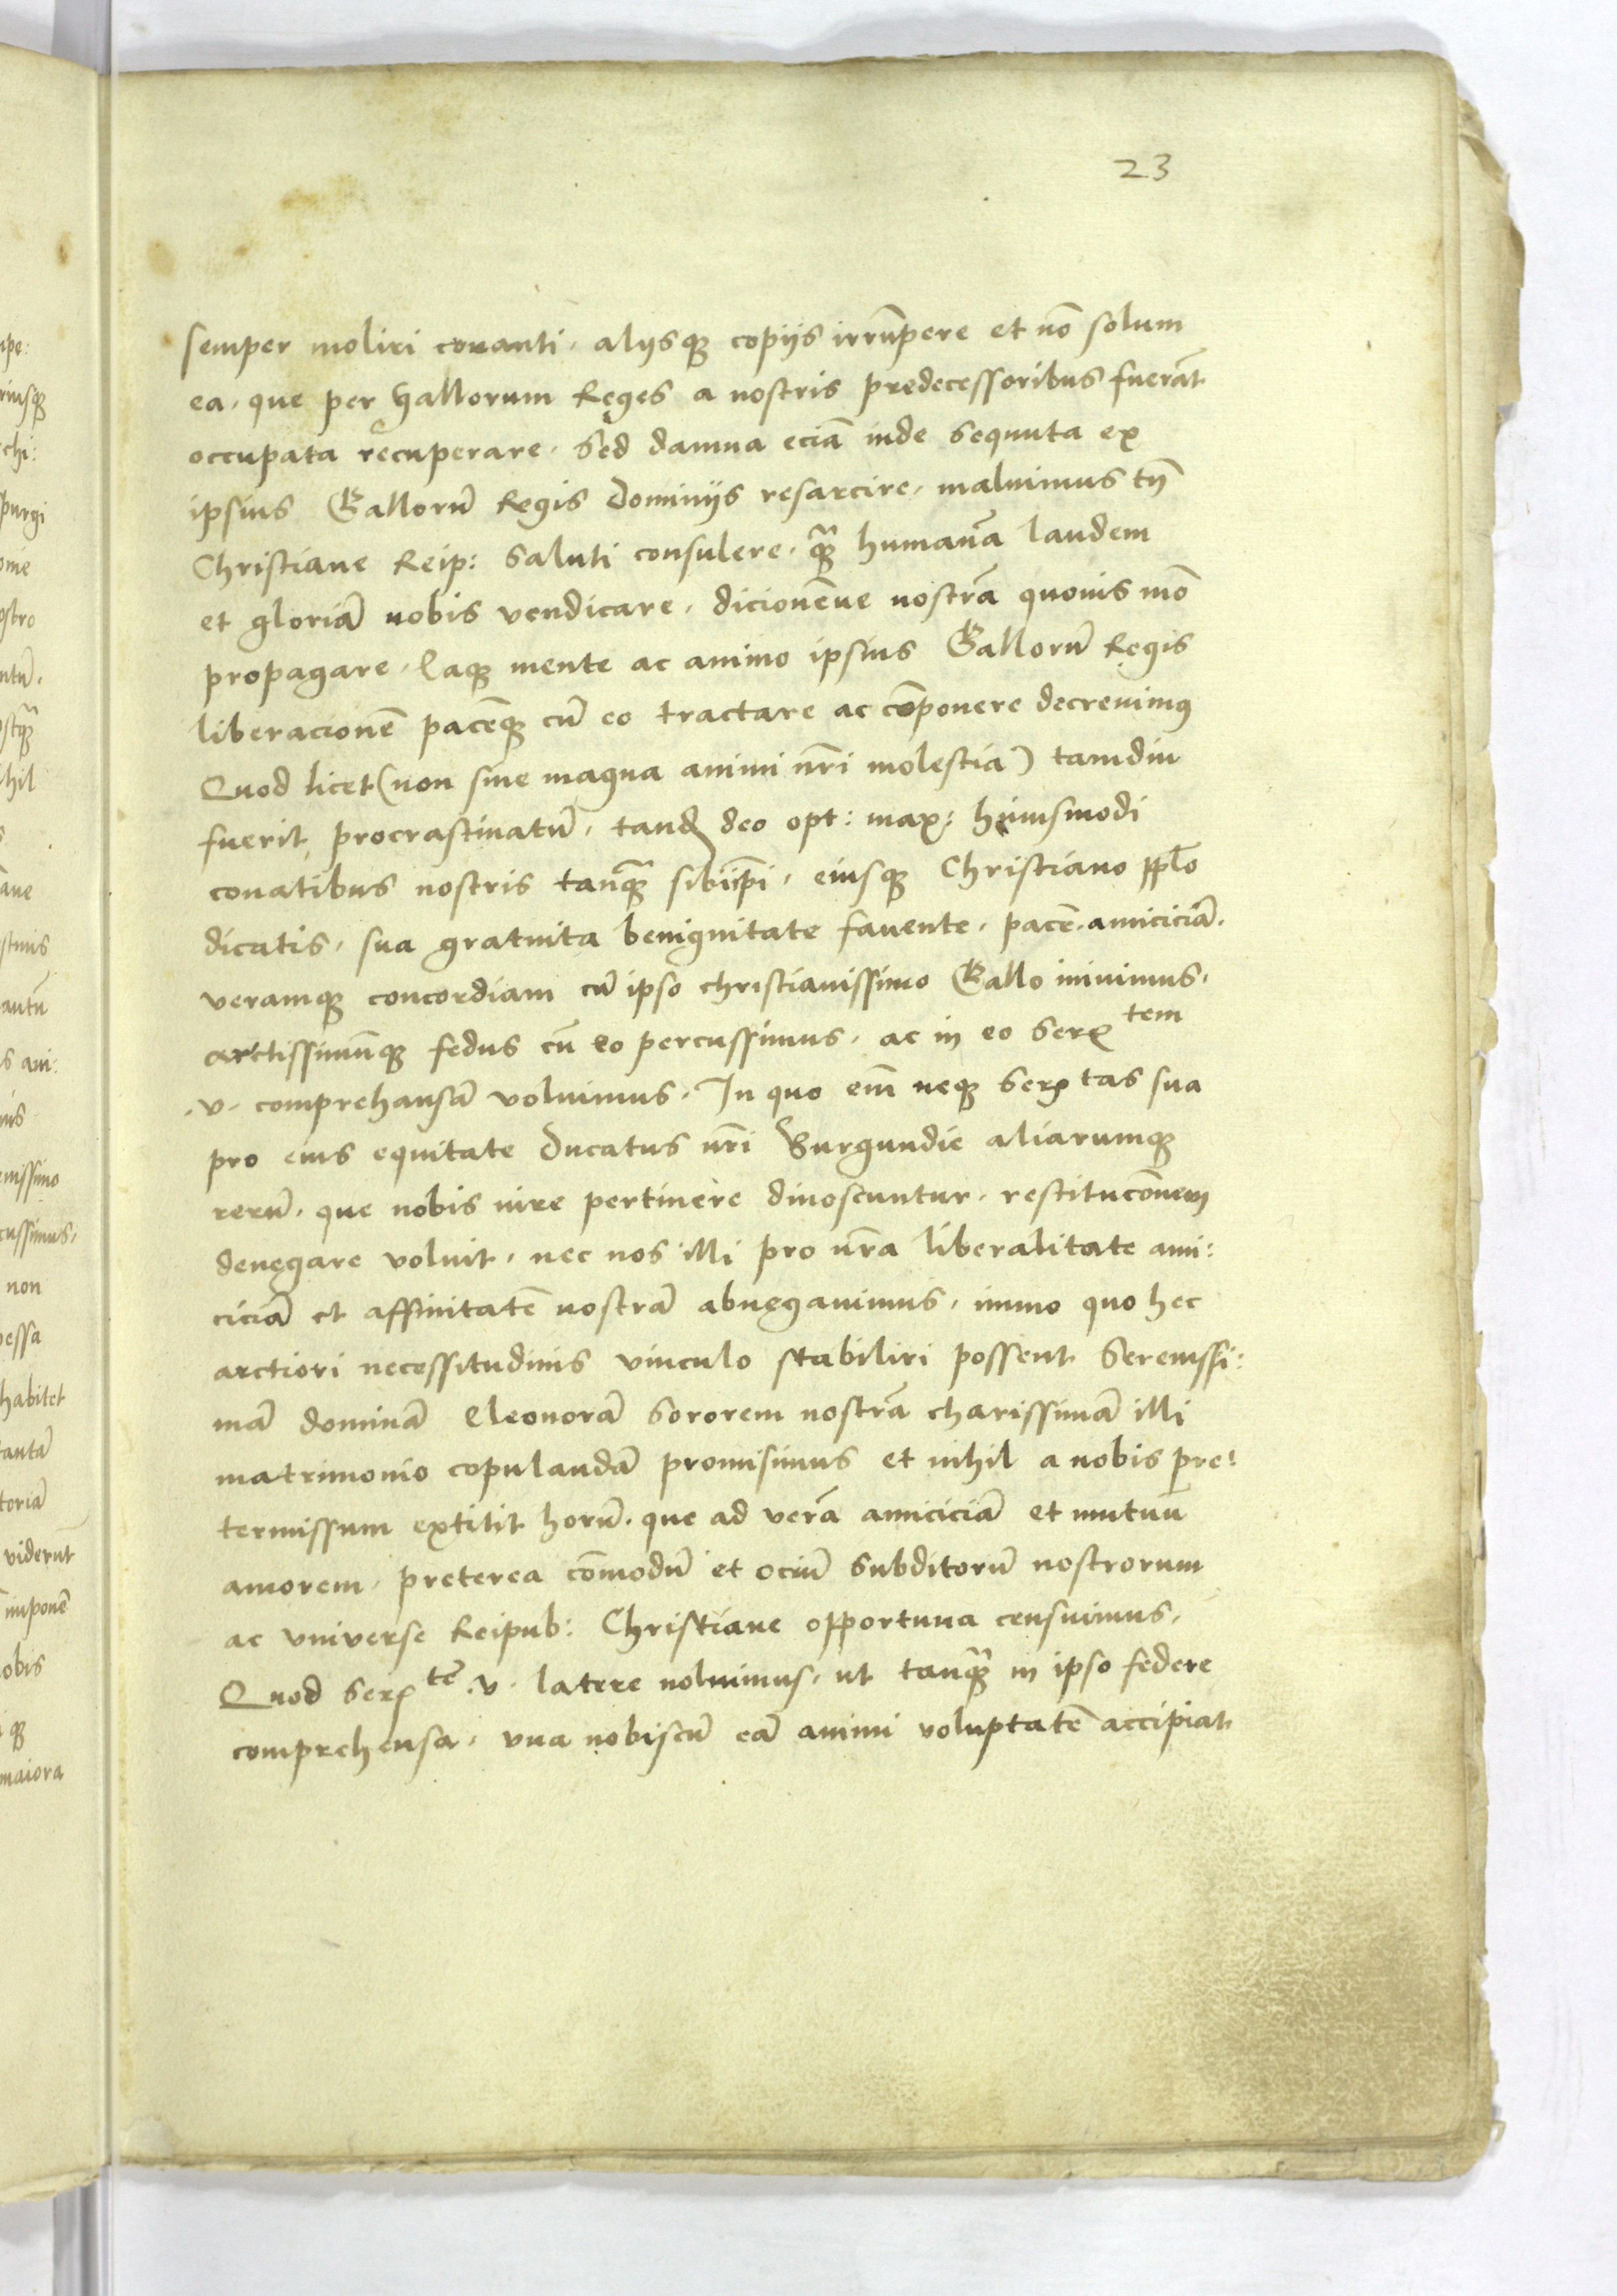 23
semper moliri conanti, alijsq̄ copijs irrūpere et nō solum
ea, que per Gallorum Reges a nostris predecessoribus fuerāt
occupata recuperare, sed damna eciā inde sequuta ex
ipsius Gallorū Regis dominijs resarcire, maluimus tn̄
Christiane Reip: saluti consulere, q̄ humanā laudem
et gloriā nobis vendicare, dicionēue nostrā quouis mō
propagare, Eaq̄ mente ac animo ipsius Gallorū Regis
liberacionē pacēq̄ cū eo tractare ac cōponere decreuimus
Quod licet (non sine magna animi nr̄i molestia) tamdiu
fuerit procrastinatū, tandē deo opt: max: huiusmodi
conatibus nostris tanq̄ sibiip̄i, eiusq̄ Christiano pp̄lo
dicatis, sua gratuita benignitate fauente, pacē, amiciciā,
veramq̄ concordiam cū ipso christianissimo Gallo iniuimus,
arctissimūq̄ fedus cū eo percussimus, ac in eo Ser tem
.v. comprehansā voluimus, In quo em̄ neq̄ Ser tas sua
pro eius equitate Ducatus nr̄i Burgundie aliarumq̄
rerū, que nobis iure pertinere dinoscuntur, restitucōnem
denegare voluit, nec nos illi pro nr̄a liberalitate ami:
ciciā et affinitatē nostrā abnegauimus, immo quo hec
arctiori necessitudinis vinculo stabiliri possent Serenissi:
mā dominā Eleonorā Sororem nostrā charissimā illi
matrimonio copulandā promisimus et nihil a nobis pre:
termissum extitit horū, que ad verā amiciciā et mutuū
amorem, preterea cōmodū et ociū Subditorū nostrorum
ac vniverse Reipub: Christiane opportuna censuimus,
Quod Ser tē .v. latere noluimus, ut tanq̄ in ipso federe
comprehensa, vna nobiscū eā animi voluptatē accipiat